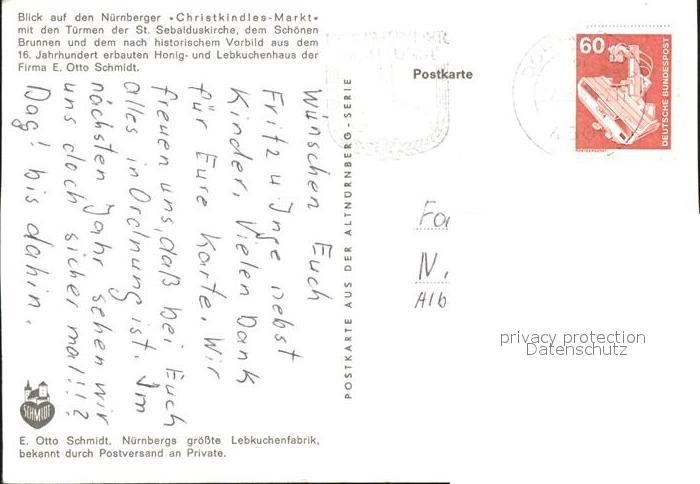 Blick auf den Nürnberger »Christkindles-Markt«
mit den Türmen der St. Sebalduskirche, dem Schönen
Brunnen und dem nach historischem Vorbild aus dem
16. Jahrhundert erbauten Honig- und Lebkuchenhaus der
Firma E. Otto Schmidt.
Postkarte
60
DEUTSCHE BUNDESPOST
Wünschen Euch
Fritz u Inge nebst
Kinder. Vielen Dank
für Eure Karte. Wir
freuen uns, daß bei Euch
alles in Ordnung ist. Im
nächsten Jahr sehen wir
uns doch sicher mal!!!?
Dag! bis dahin.
POSTKARTE AUS DER ALTNÜRNBERG-SERIE
Fa
N.
Alb
privacy protection
Datenschutz
SCHMIDT
E. Otto Schmidt, Nürnbergs größte Lebkuchenfabrik,
bekannt durch Postversand an Private.